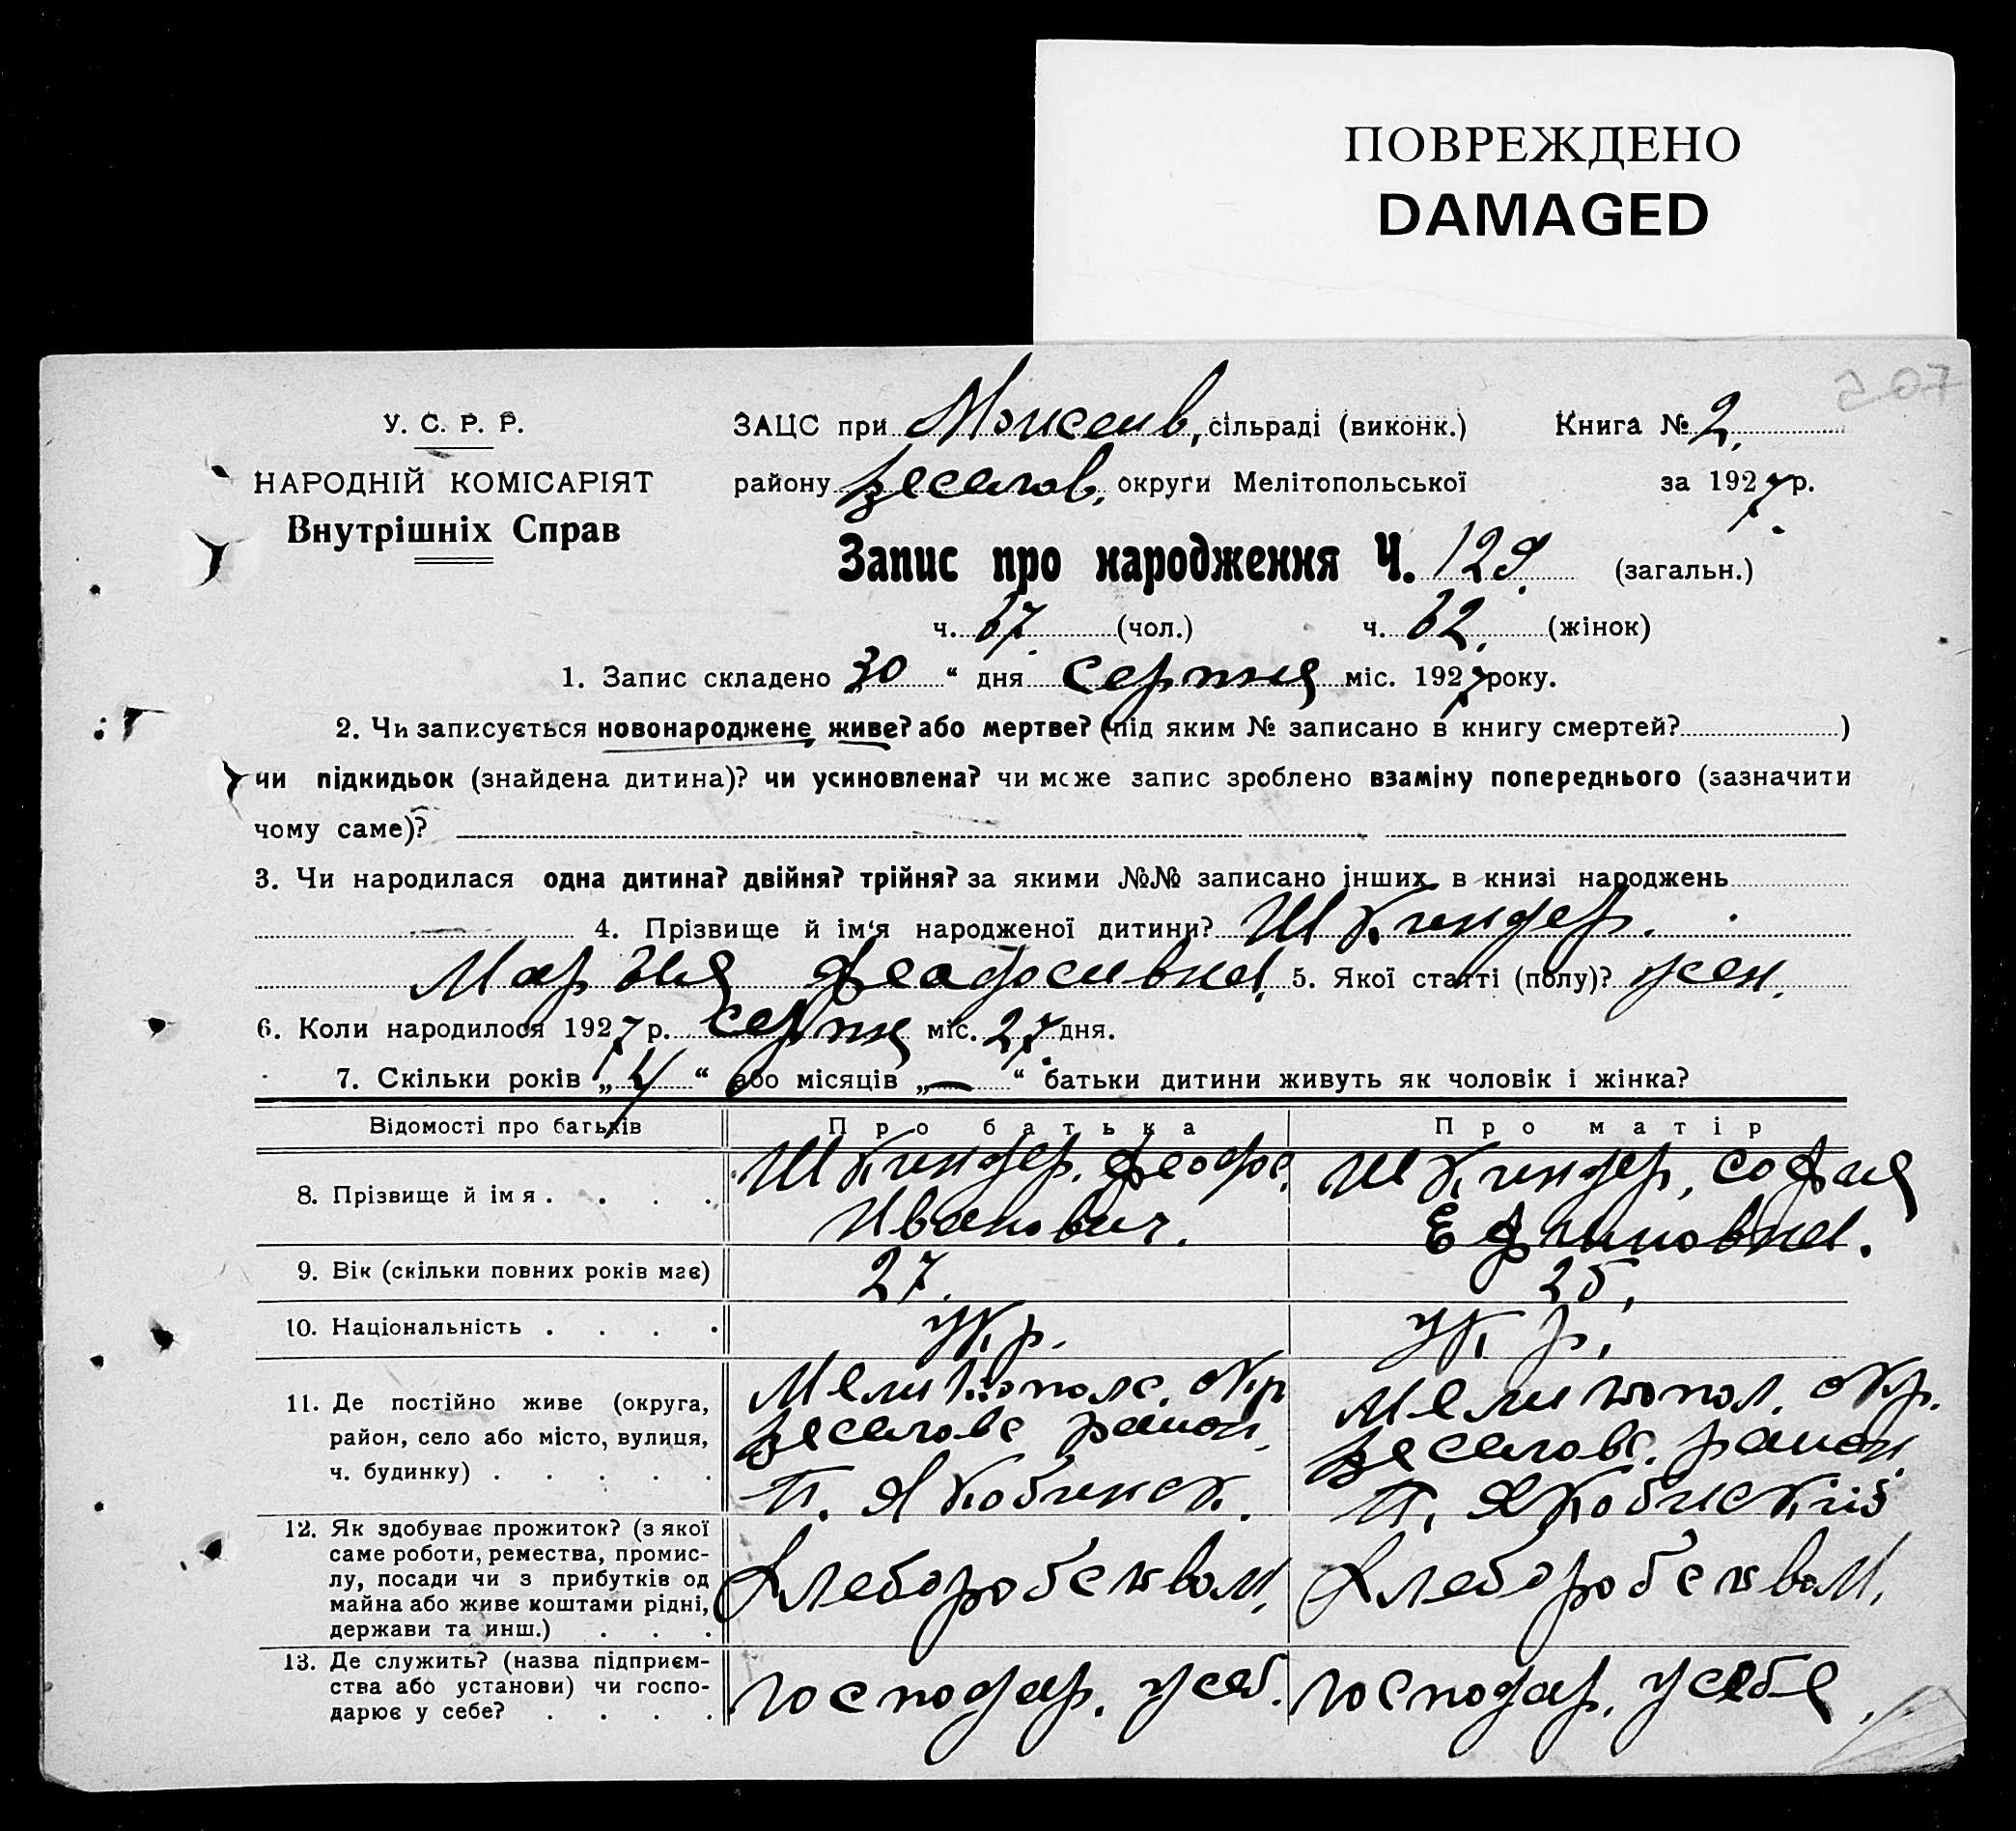 ПОВРЕЖДЕНО
DAMAGED
507
У. С. Р. Р.
НАРОДНІЙ КОМІСАРІЯТ
Внутрішніх Справ
ЗАЦС при Моисеив, сільраді (виконк.) Книга № 2.
району Веселов, округи Мелітопольської за 1927 р.
Запис про народження Ч. 129. (загальн.)
ч. 67. (чол.) ч. 62. (жінок)
1. Запис складено 30 “ дня серпня міс. 1927 року.
2. Чи записується новонароджене, живе? або мертве? (під яким № записано в книгу смертей? )
чи підкидьок (знайдена дитина)? чи усиновлена? чи може запис зроблено взаміну попереднього (зазначити
чому саме)?
3. Чи народилася одна дитина? двійня? трійня? за якими №№ записано інших в книзі народжень
4. Прізвище й ім‘я народженої дитини? Шкиндер.
Мария Феодосивна. 5. Якої статті (полу)? жен.
6. Коли народилося 1927 р. серпня міс. 27 дня.
7. Скільки років „ 4 “ або місяців „ — “ батьки дитини живуть як чоловік і жінка?
Відомості про батьків Про батька Про матір
8. Прізвище й ім я . . . . Шкиндер, Феодос. Шкиндер, София
Иванович. Ефимовна.
9. Вік (скільки повних років має) 27. 25,
10. Національність . . . . Укр. Укр.
11. Де постійно живе (округа, Мелитополс. окр Мелитопол. окр.
район, село або місто, вулиця, Веселовс район, Веселовс. район
ч. будинку) . . . . . П. Якобинск. П. Якобиский
12. Як здобуває прожиток? (з якої
саме роботи, ремества, промис-
лу, посади чи з прибутків од Хлеборобством, Хлеборобством,
майна або живе коштами рідні,
держави та инш.) . . .
13. Де служить? (назва підприєм-
ства або установи) чи госпо- господар. у себ. господар. у себе
дарює у себе? . . . .